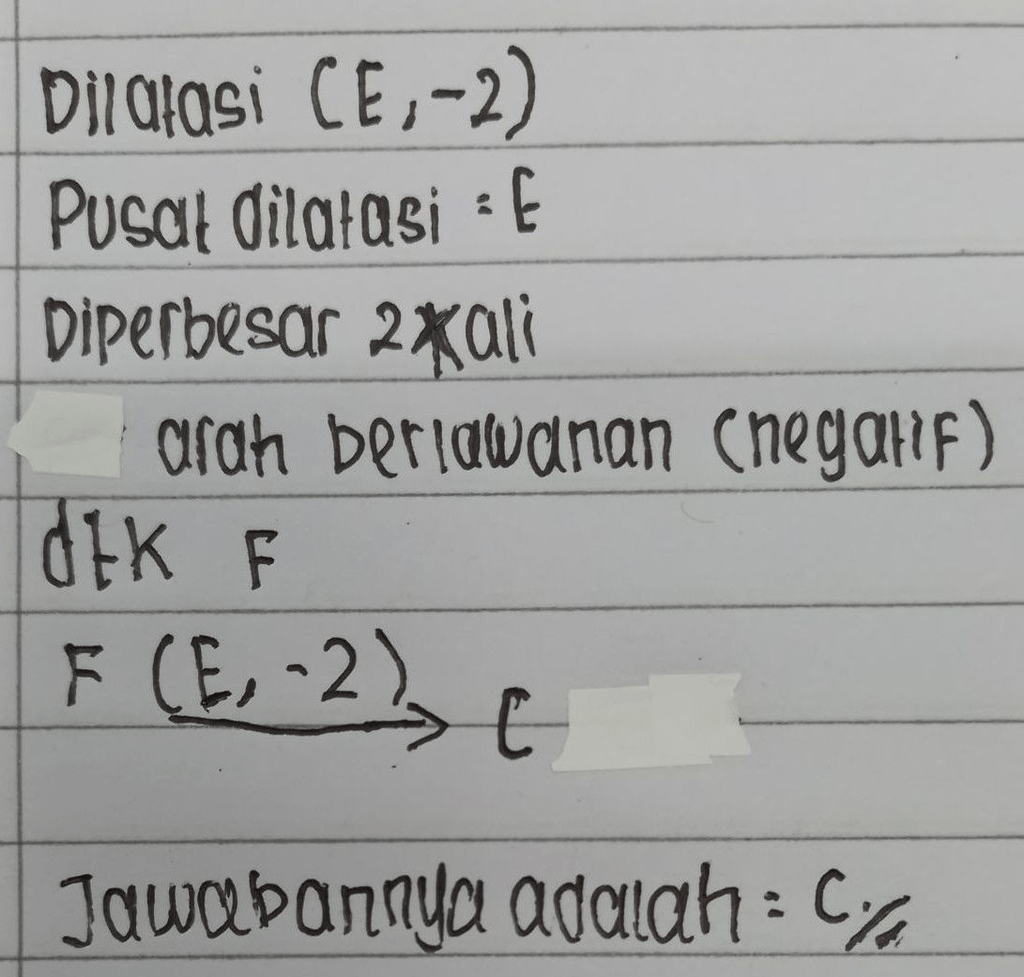 Dilatasi (E, -2)
Pusat dilatasi = E
Diperbesar 2 kali
arah berlawanan (negatif)
dtk F
F (E, -2) → C
Jawabannya adalah = C.//